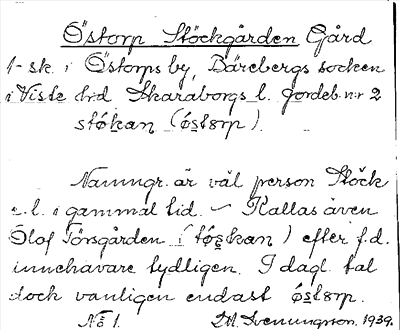 Östorp Stöckgården Gård
1- sk. i Östorps by, Bärebergs socken
i Viste hrd Skaraborgs l. Jordeb. nr 2
støkan (østørp).
Namngr. är väl person Stöck
e. l. i gammal tid. – Kallas även
Olof Törsgården (tøskan) efter f.d.
innehavare tydligen. I dagl. tal
dock vanligen endast østørp.
No 1. Svenungsson. 1939.